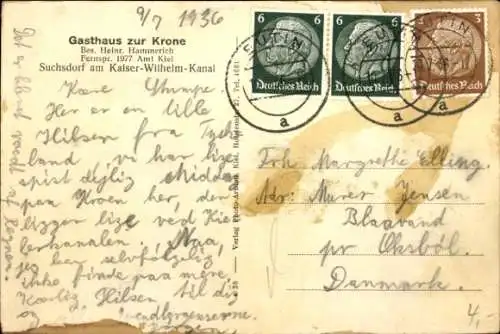 9/7 1936
Gasthaus zur Krone
Bes. Heinr. Hammerich
Fernspr. 1977 Amt Kiel
Suchsdorf am Kaiser-Wilhelm-Kanal
Kære
Her er en lille
Hilsen fra Tysk
land, vi har lige
spist dejlig Middag
paa Kroen her, den
ligger lige ved Kie
lerkanalen. Naa,
jeg kan selvfølgelig
ikke finde paa mere
Kærlig Hilsen til dig
og
Det er blevet vaadt af Regnen.
Verlag Photo-
6 6 3
Deutsches Reich Deutsches Reich Deutsches Reich
EUTIN EUTIN EUTIN
a a a
Frk. Margrethe Elling.
Adr: Murer Jensen
Blaavand
pr Oksböl.
Danmark.
4,-